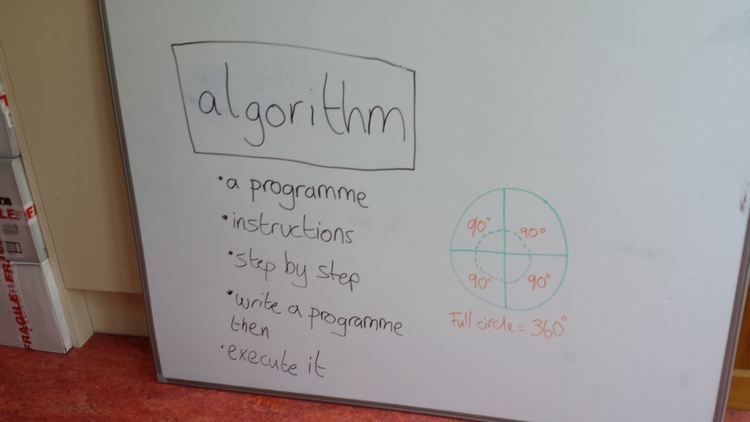 algorithm
•a programme
•instructions
•step by step
•write a programme
then
•execute it
90° 90°
90° 90°
Full circle = 360°
FRAGILE